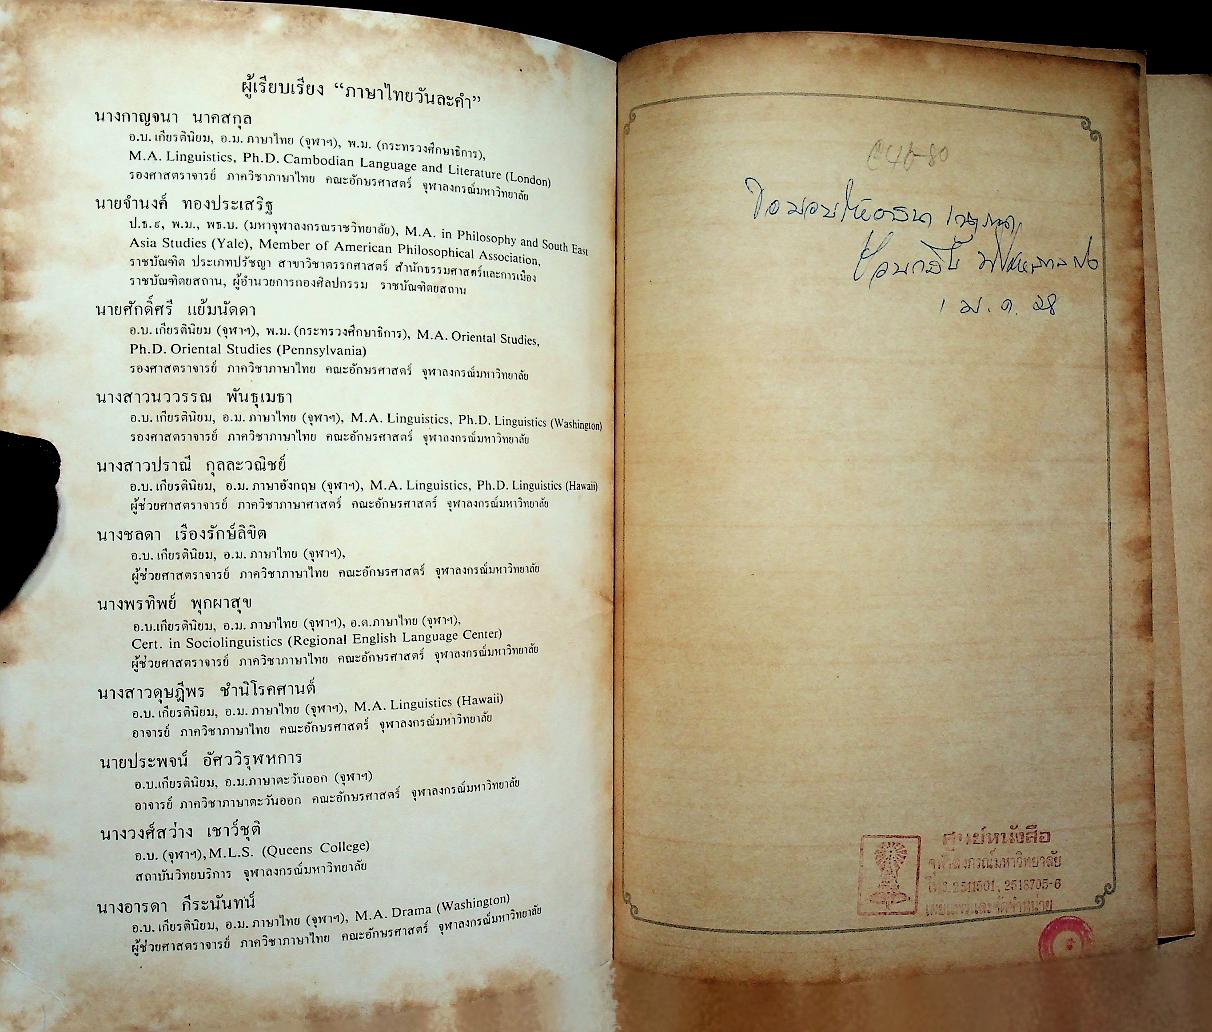 ผู้เรียบเรียง “ภาษาไทยวันละคำ”
นางกาญจนา นาคสกุล
อ.บ. เกียรตินิยม, อ.ม. ภาษาไทย (จุฬาฯ), พ.ม. (กระทรวงศึกษาธิการ),
M.A. Linguistics, Ph.D. Cambodian Language and Literature (London)
รองศาสตราจารย์ ภาควิชาภาษาไทย คณะอักษรศาสตร์ จุฬาลงกรณ์มหาวิทยาลัย
นายจำนงค์ ทองประเสริฐ
ป.ธ.๙, พ.ม., พธ.บ. (มหาจุฬาลงกรณราชวิทยาลัย), M.A. in Philosophy and South East
Asia Studies (Yale), Member of American Philosophical Association,
ราชบัณฑิต ประเภทปรัชญา สาขาวิชาตรรกศาสตร์ สำนักธรรมศาสตร์และการเมือง
ราชบัณฑิตยสถาน, ผู้อำนวยการกองศิลปกรรม ราชบัณฑิตยสถาน
นายศักดิ์ศรี แย้มนัดดา
อ.บ. เกียรตินิยม (จุฬาฯ), พ.ม. (กระทรวงศึกษาธิการ), M.A. Oriental Studies,
Ph.D. Oriental Studies (Pennsylvania)
รองศาสตราจารย์ ภาควิชาภาษาไทย คณะอักษรศาสตร์ จุฬาลงกรณ์มหาวิทยาลัย
นางสาวนววรรณ พันธุเมธา
อ.บ. เกียรตินิยม, อ.ม. ภาษาไทย (จุฬาฯ), M.A. Linguistics, Ph.D. Linguistics (Washington)
รองศาสตราจารย์ ภาควิชาภาษาไทย คณะอักษรศาสตร์ จุฬาลงกรณ์มหาวิทยาลัย
นางสาวปราณี กุลละวณิชย์
อ.บ. เกียรตินิยม, อ.ม. ภาษาอังกฤษ (จุฬาฯ), M.A. Linguistics, Ph.D. Linguistics (Hawaii)
ผู้ช่วยศาสตราจารย์ ภาควิชาภาษาศาสตร์ คณะอักษรศาสตร์ จุฬาลงกรณ์มหาวิทยาลัย
นางชลดา เรืองรักษ์ลิขิต
อ.บ. เกียรตินิยม, อ.ม. ภาษาไทย (จุฬาฯ),
ผู้ช่วยศาสตราจารย์ ภาควิชาภาษาไทย คณะอักษรศาสตร์ จุฬาลงกรณ์มหาวิทยาลัย
นางพรทิพย์ พุกผาสุข
อ.บ.เกียรตินิยม, อ.ม. ภาษาไทย (จุฬาฯ), อ.ด.ภาษาไทย (จุฬาฯ),
Cert. in Sociolinguistics (Regional English Language Center)
ผู้ช่วยศาสตราจารย์ ภาควิชาภาษาไทย คณะอักษรศาสตร์ จุฬาลงกรณ์มหาวิทยาลัย
นางสาวดุษฎีพร ชำนิโรคศานต์
อ.บ. เกียรตินิยม, อ.ม. ภาษาไทย (จุฬาฯ), M.A. Linguistics (Hawaii)
อาจารย์ ภาควิชาภาษาไทย คณะอักษรศาสตร์ จุฬาลงกรณ์มหาวิทยาลัย
นายประพจน์ อัศววิรุฬหการ
อ.บ.เกียรตินิยม, อ.ม.ภาษาตะวันออก (จุฬาฯ)
อาจารย์ ภาควิชาภาษาตะวันออก คณะอักษรศาสตร์ จุฬาลงกรณ์มหาวิทยาลัย
นางวงศ์สว่าง เชาว์ชุติ
อ.บ. (จุฬาฯ), M.L.S. (Queens College)
สถาบันวิทยบริการ จุฬาลงกรณ์มหาวิทยาลัย
นางอารดา กีระนันทน์
อ.บ. เกียรตินิยม, อ.ม. ภาษาไทย (จุฬาฯ), M.A. Drama (Washington)
ผู้ช่วยศาสตราจารย์ ภาควิชาภาษาไทย คณะอักษรศาสตร์ จุฬาลงกรณ์มหาวิทยาลัย
ขอมอบให้
ศูนย์หนังสือ
จุฬาลงกรณ์มหาวิทยาลัย
โทร. 2511501, 2518705-6